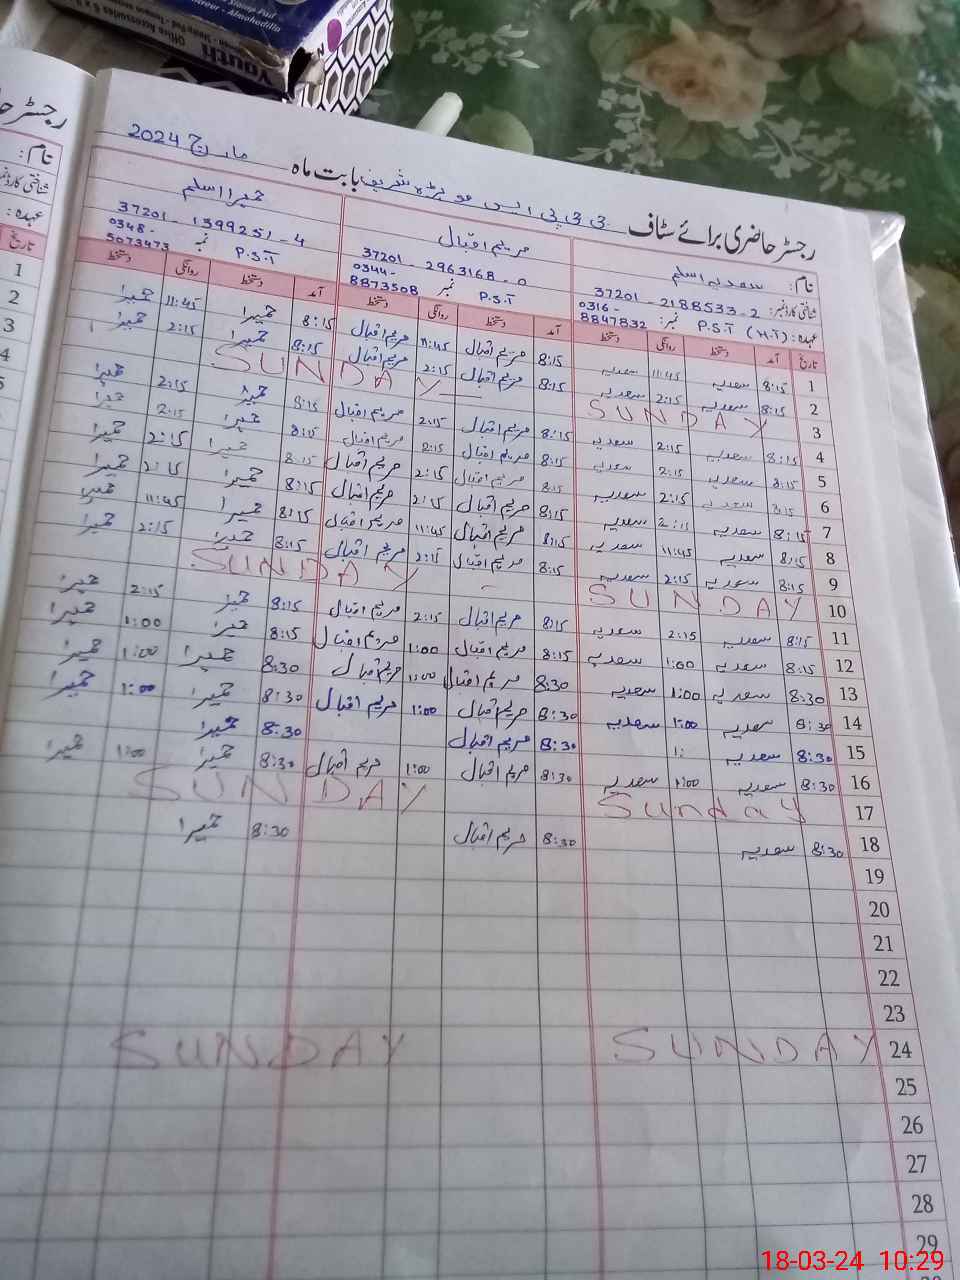 Youth
رجسٹر حاضری برائے سٹاف جی جی پی ایس بابت ماہ مارچ 2024
نام: سعدیہ اسلم مریم اقبال حمیرا اسلم
شناختی کارڈ نمبر: 37201-2188533-2 37201-2963168-0 37201-1399251-4
عہدہ: P.S.T (H.T) نمبر: 0316-8847832 P.S.T نمبر 0344-8873508 P.S.T نمبر 0348-5073473
تاریخ آمد دستخط روانگی دستخط آمد دستخط روانگی دستخط آمد دستخط روانگی دستخط
1 8:15 سعدیہ 11:45 سعدیہ 8:15 مریم اقبال 11:45 مریم اقبال 8:15 حمیرا 11:45 حمیرا
2 8:15 سعدیہ 2:15 سعدیہ 8:15 مریم اقبال 2:15 مریم اقبال 8:15 حمیرا 2:15 حمیرا
3 SUNDAY SUNDAY
4 8:15 سعدیہ 2:15 سعدیہ 8:15 مریم اقبال 2:15 مریم اقبال 8:15 حمیرا 2:15 حمیرا
5 8:15 سعدیہ 2:15 سعدیہ 8:15 مریم اقبال 2:15 مریم اقبال 8:15 حمیرا 2:15 حمیرا
6 8:15 سعدیہ 2:15 سعدیہ 8:15 مریم اقبال 2:15 مریم اقبال 8:15 حمیرا 2:15 حمیرا
7 8:15 سعدیہ 2:15 سعدیہ 8:15 مریم اقبال 2:15 مریم اقبال 8:15 حمیرا 2:15 حمیرا
8 8:15 سعدیہ 11:45 سعدیہ 8:15 مریم اقبال 11:45 مریم اقبال 8:15 حمیرا 11:45 حمیرا
9 8:15 سعدیہ 2:15 سعدیہ 8:15 مریم اقبال 2:15 مریم اقبال 8:15 حمیرا 2:15 حمیرا
10 SUNDAY SUNDAY
11 8:15 سعدیہ 2:15 سعدیہ 8:15 مریم اقبال 2:15 مریم اقبال 8:15 حمیرا 2:15 حمیرا
12 8:15 سعدیہ 1:00 سعدیہ 8:15 مریم اقبال 1:00 مریم اقبال 8:15 حمیرا 1:00 حمیرا
13 8:30 سعدیہ 1:00 سعدیہ 8:30 مریم اقبال 1:00 مریم اقبال 8:30 حمیرا 1:00 حمیرا
14 8:30 سعدیہ 1:00 سعدیہ 8:30 مریم اقبال 1:00 مریم اقبال 8:30 حمیرا 1:00 حمیرا
15 8:30 سعدیہ 1: 8:30 مریم اقبال 8:30 حمیرا
16 8:30 سعدیہ 1:00 سعدیہ 8:30 مریم اقبال 1:00 مریم اقبال 8:30 حمیرا 1:00 حمیرا
17 Sunday SUNDAY
18 8:30 سعدیہ 8:30 مریم اقبال 8:30 حمیرا
19
20
21
22
23
24 SUNDAY SUNDAY
25
26
27
28
29
رجسٹر
نام:
شناختی کارڈ نمبر
عہدہ:
تاریخ
1
2
3
4
5
18-03-24 10:29